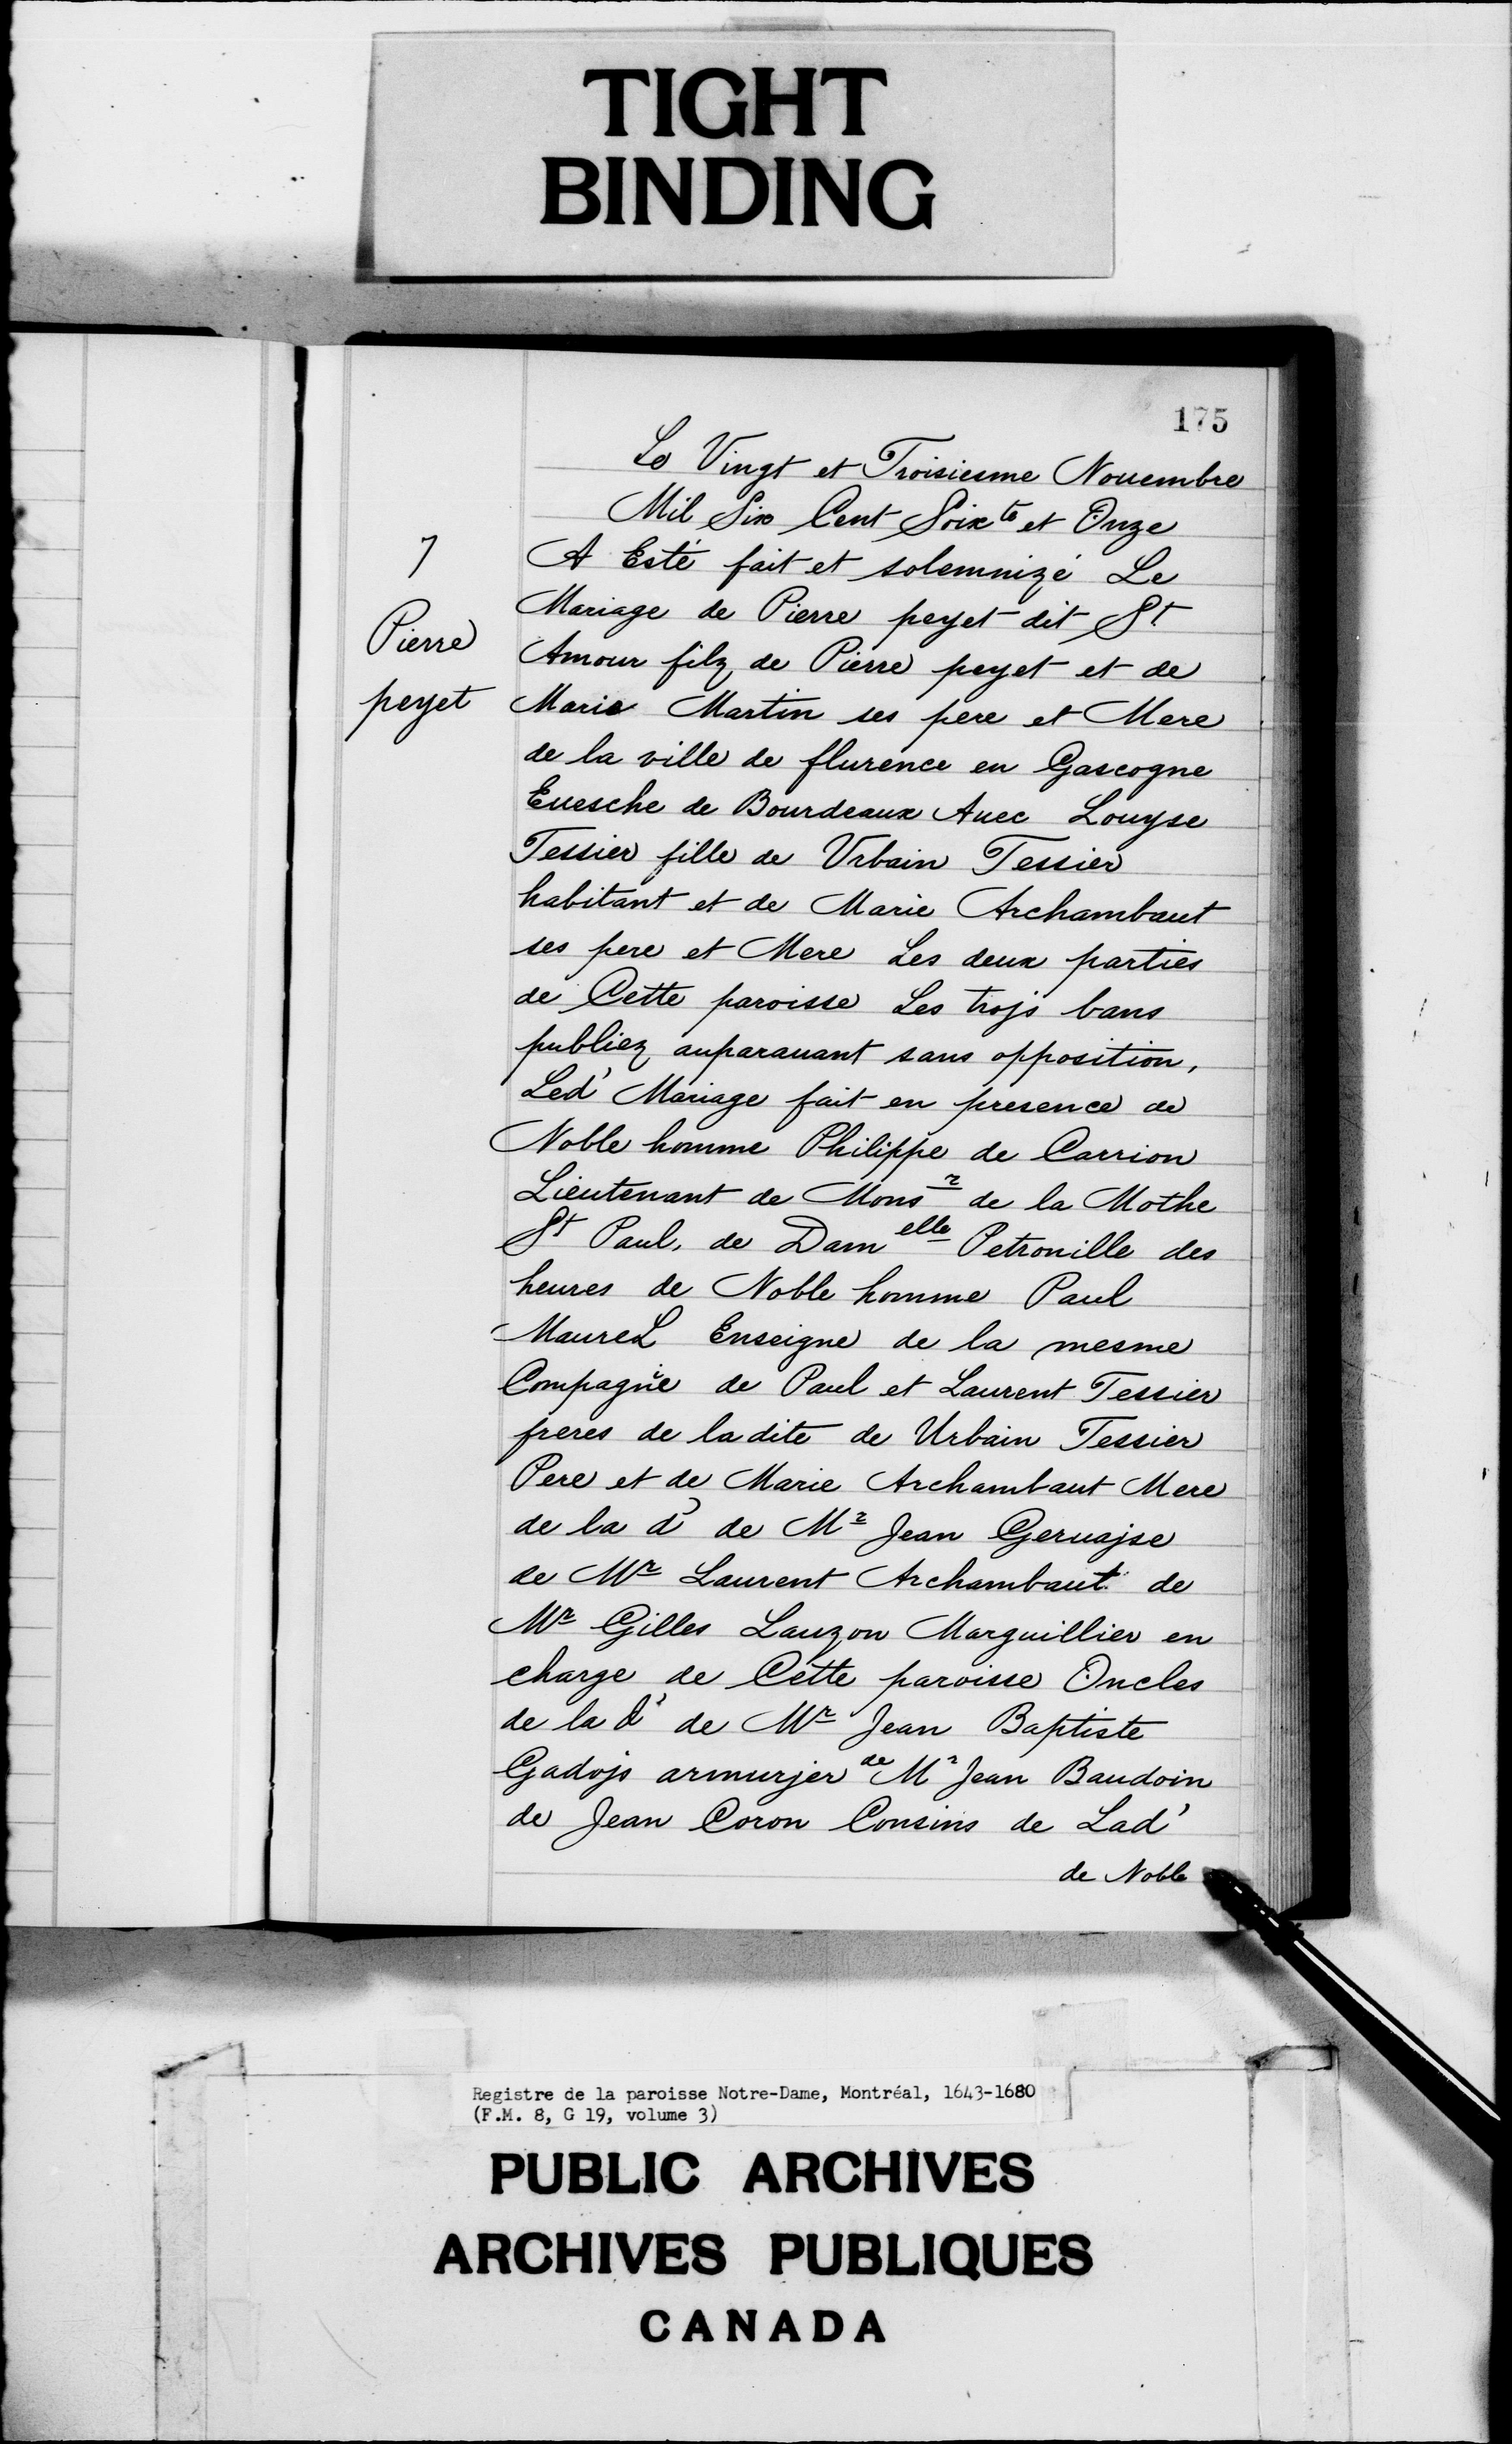 TIGHT
BINDING
175
Le Vingt et Troisiesme Nouembre
Mil Six Cent Soixte et Onze
7
A Esté fait et solemnizé Le
Mariage de Pierre peyet dit St
Pierre
Amour filz de Pierre peyet et de
peyet
Marie Martin ses pere et Mere
de la ville de flurence en Gascogne
Euesche de Bourdeaux Auec Louyse
Tessier fille de Vrbain Tessier
habitant et de Marie Archambaut
ses pere et Mere Les deux parties
de Cette paroisse Les trojs bans
publiez auparauant sans opposition,
Led' Mariage fait en presence de
Noble homme Philippe de Carrion
Lieutenant de Monsr de la Mothe
St Paul, de Damelle Petronille des
heures de Noble homme Paul
MaureL Enseigne de la mesme
Compagñie de Paul et Laurent Tessier
freres de ladite de Urbain Tessier
Pere et de Marie Archambaut Mere
de la d' de Mr Jean Geruajse
de Mr Laurent Archambaut de
Mr Gilles Lauzon Marguillier en
charge de Cette paroisse Oncles
de la d' de Mr Jean Baptiste
Gadojs armurjer de Mr Jean Baudoin
de Jean Coron Consins de Lad'
de Noble
Registre de la paroisse Notre-Dame, Montréal, 1643-1680
(F.M. 8, G 19, volume 3)
PUBLIC ARCHIVES
ARCHIVES PUBLIQUES
CANADA